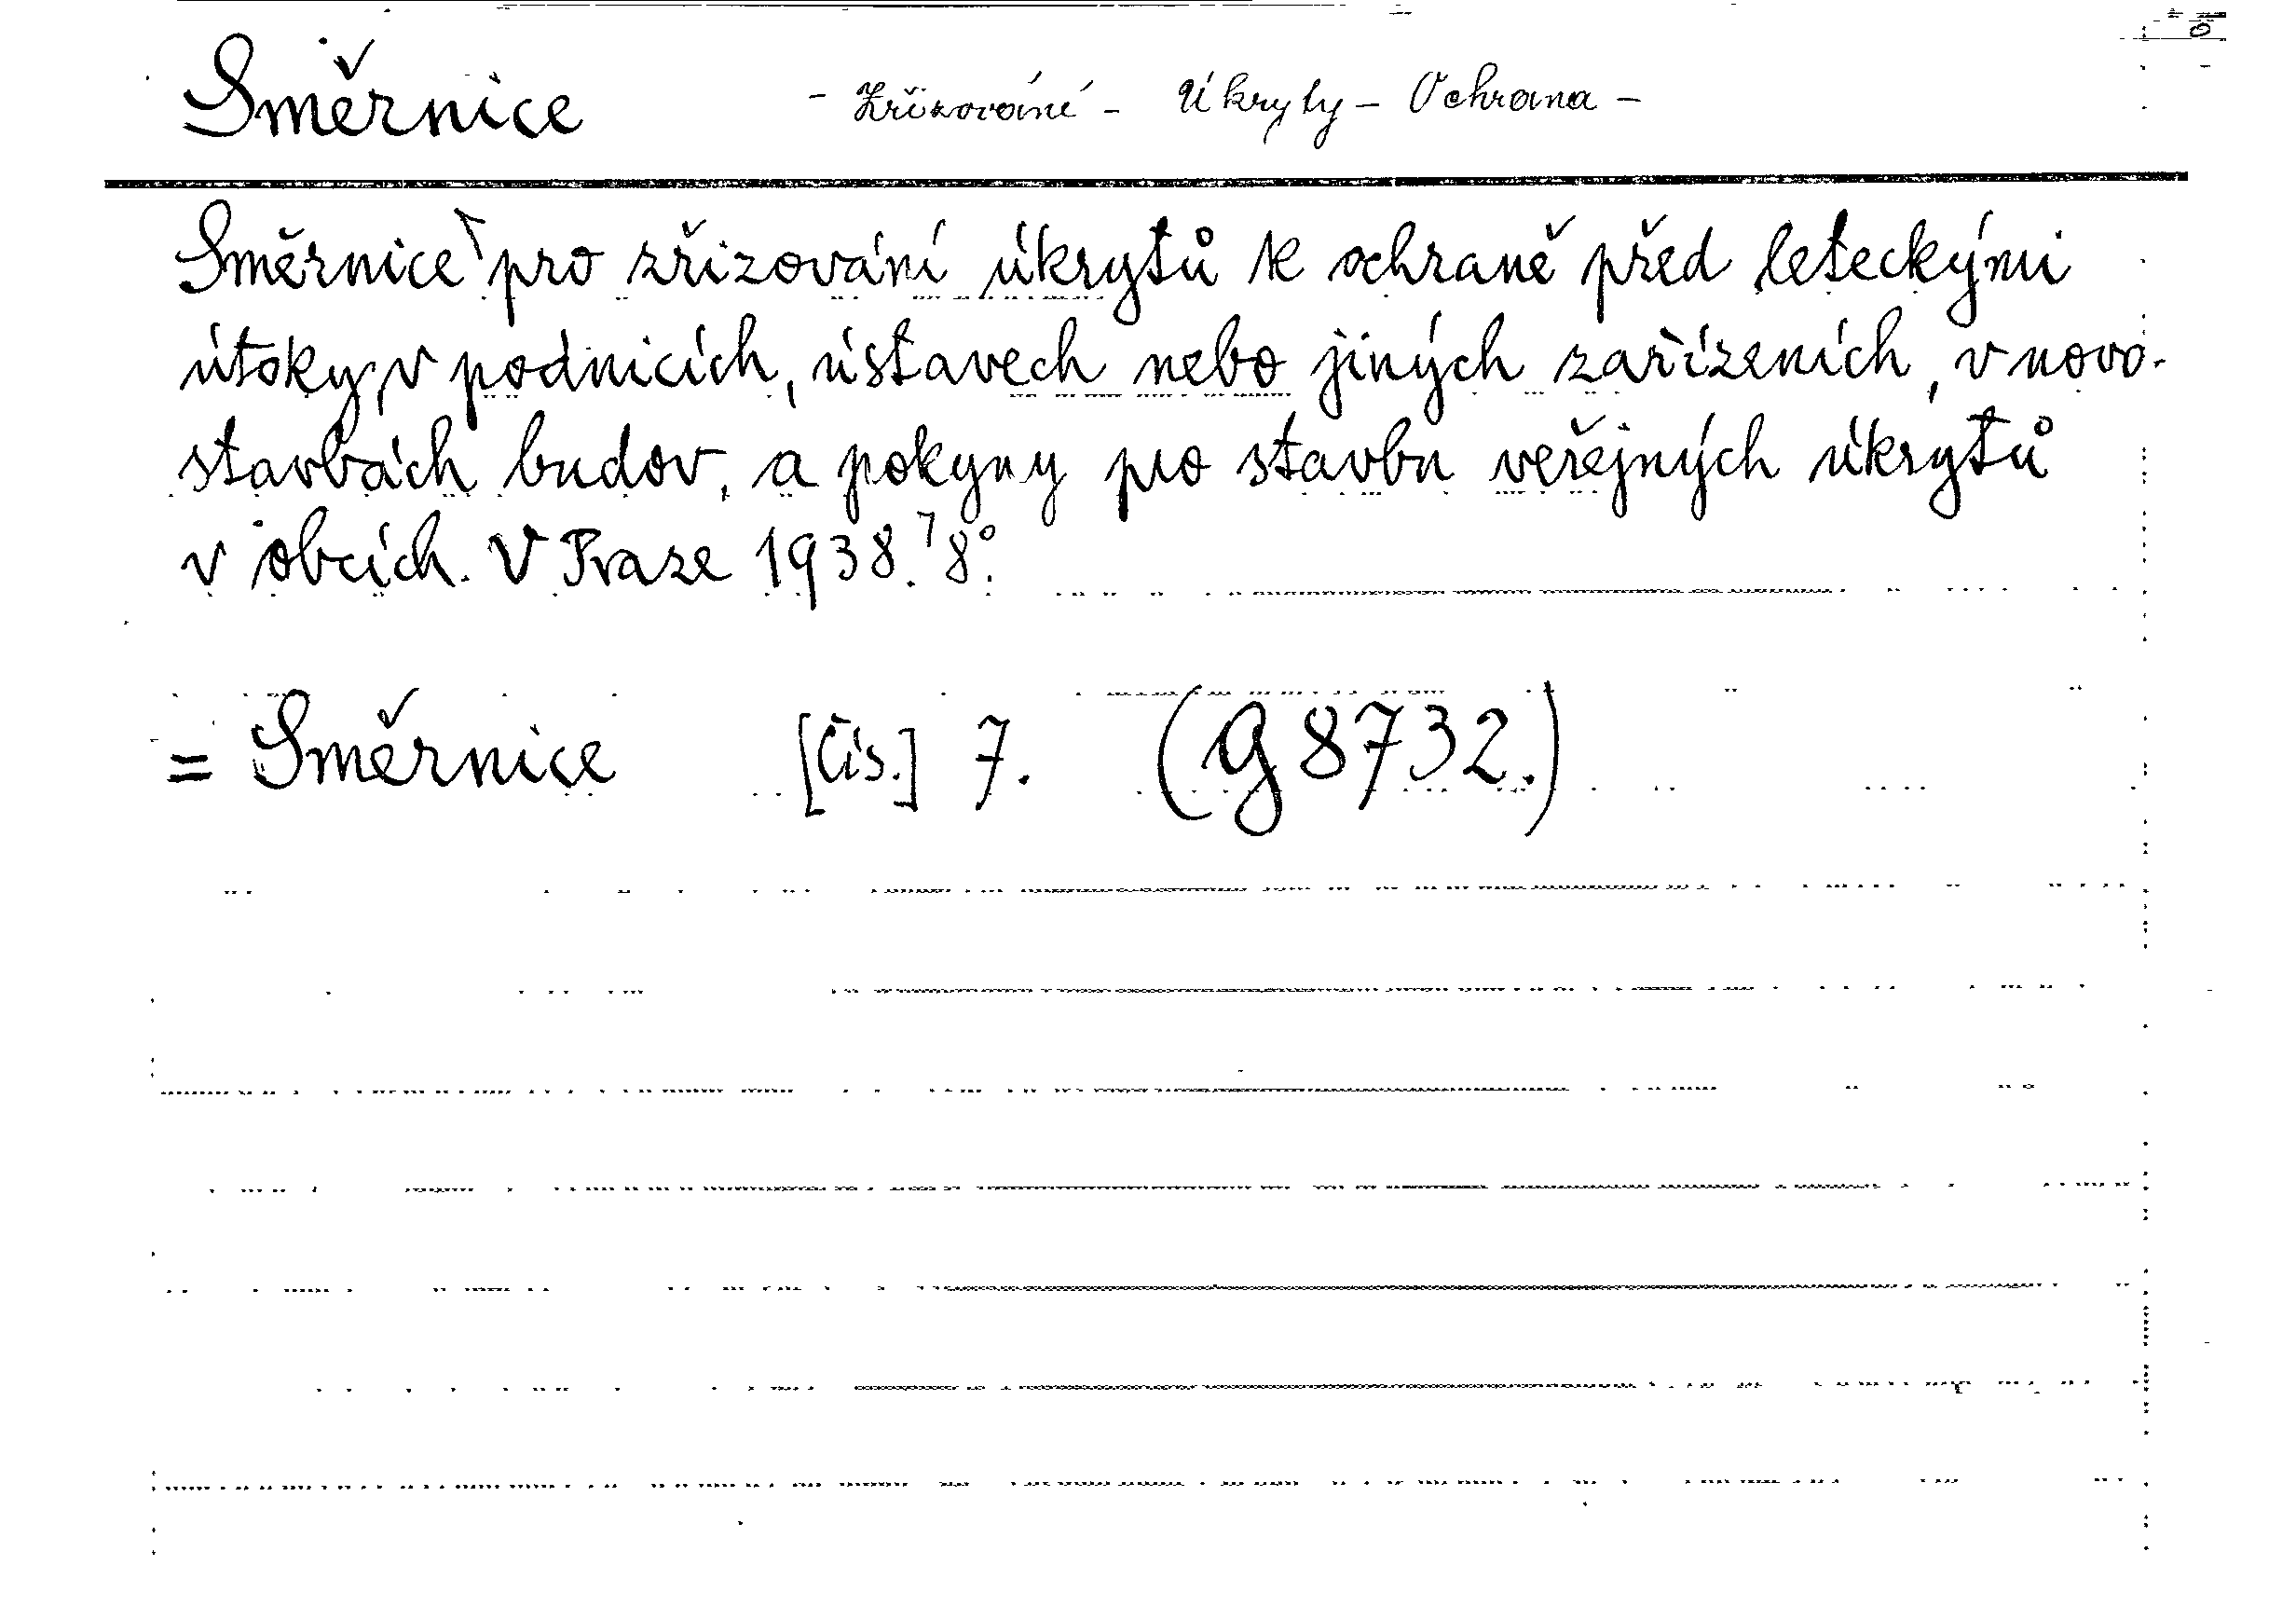 Směrnice - Zřizováné - Úkryty - Ochrana -
Směrnice pro zřizování úkrytů k ochraně před leteckými
útoky, v podnicích, ústavech nebo jiných zařízeních, v novo-
stavbách budov, a pokyny pro stavbu veřejných úkrytů
v obcích. V Praze 1938. 8°.
= Směrnice [Čís.] 7. (G 8732.)